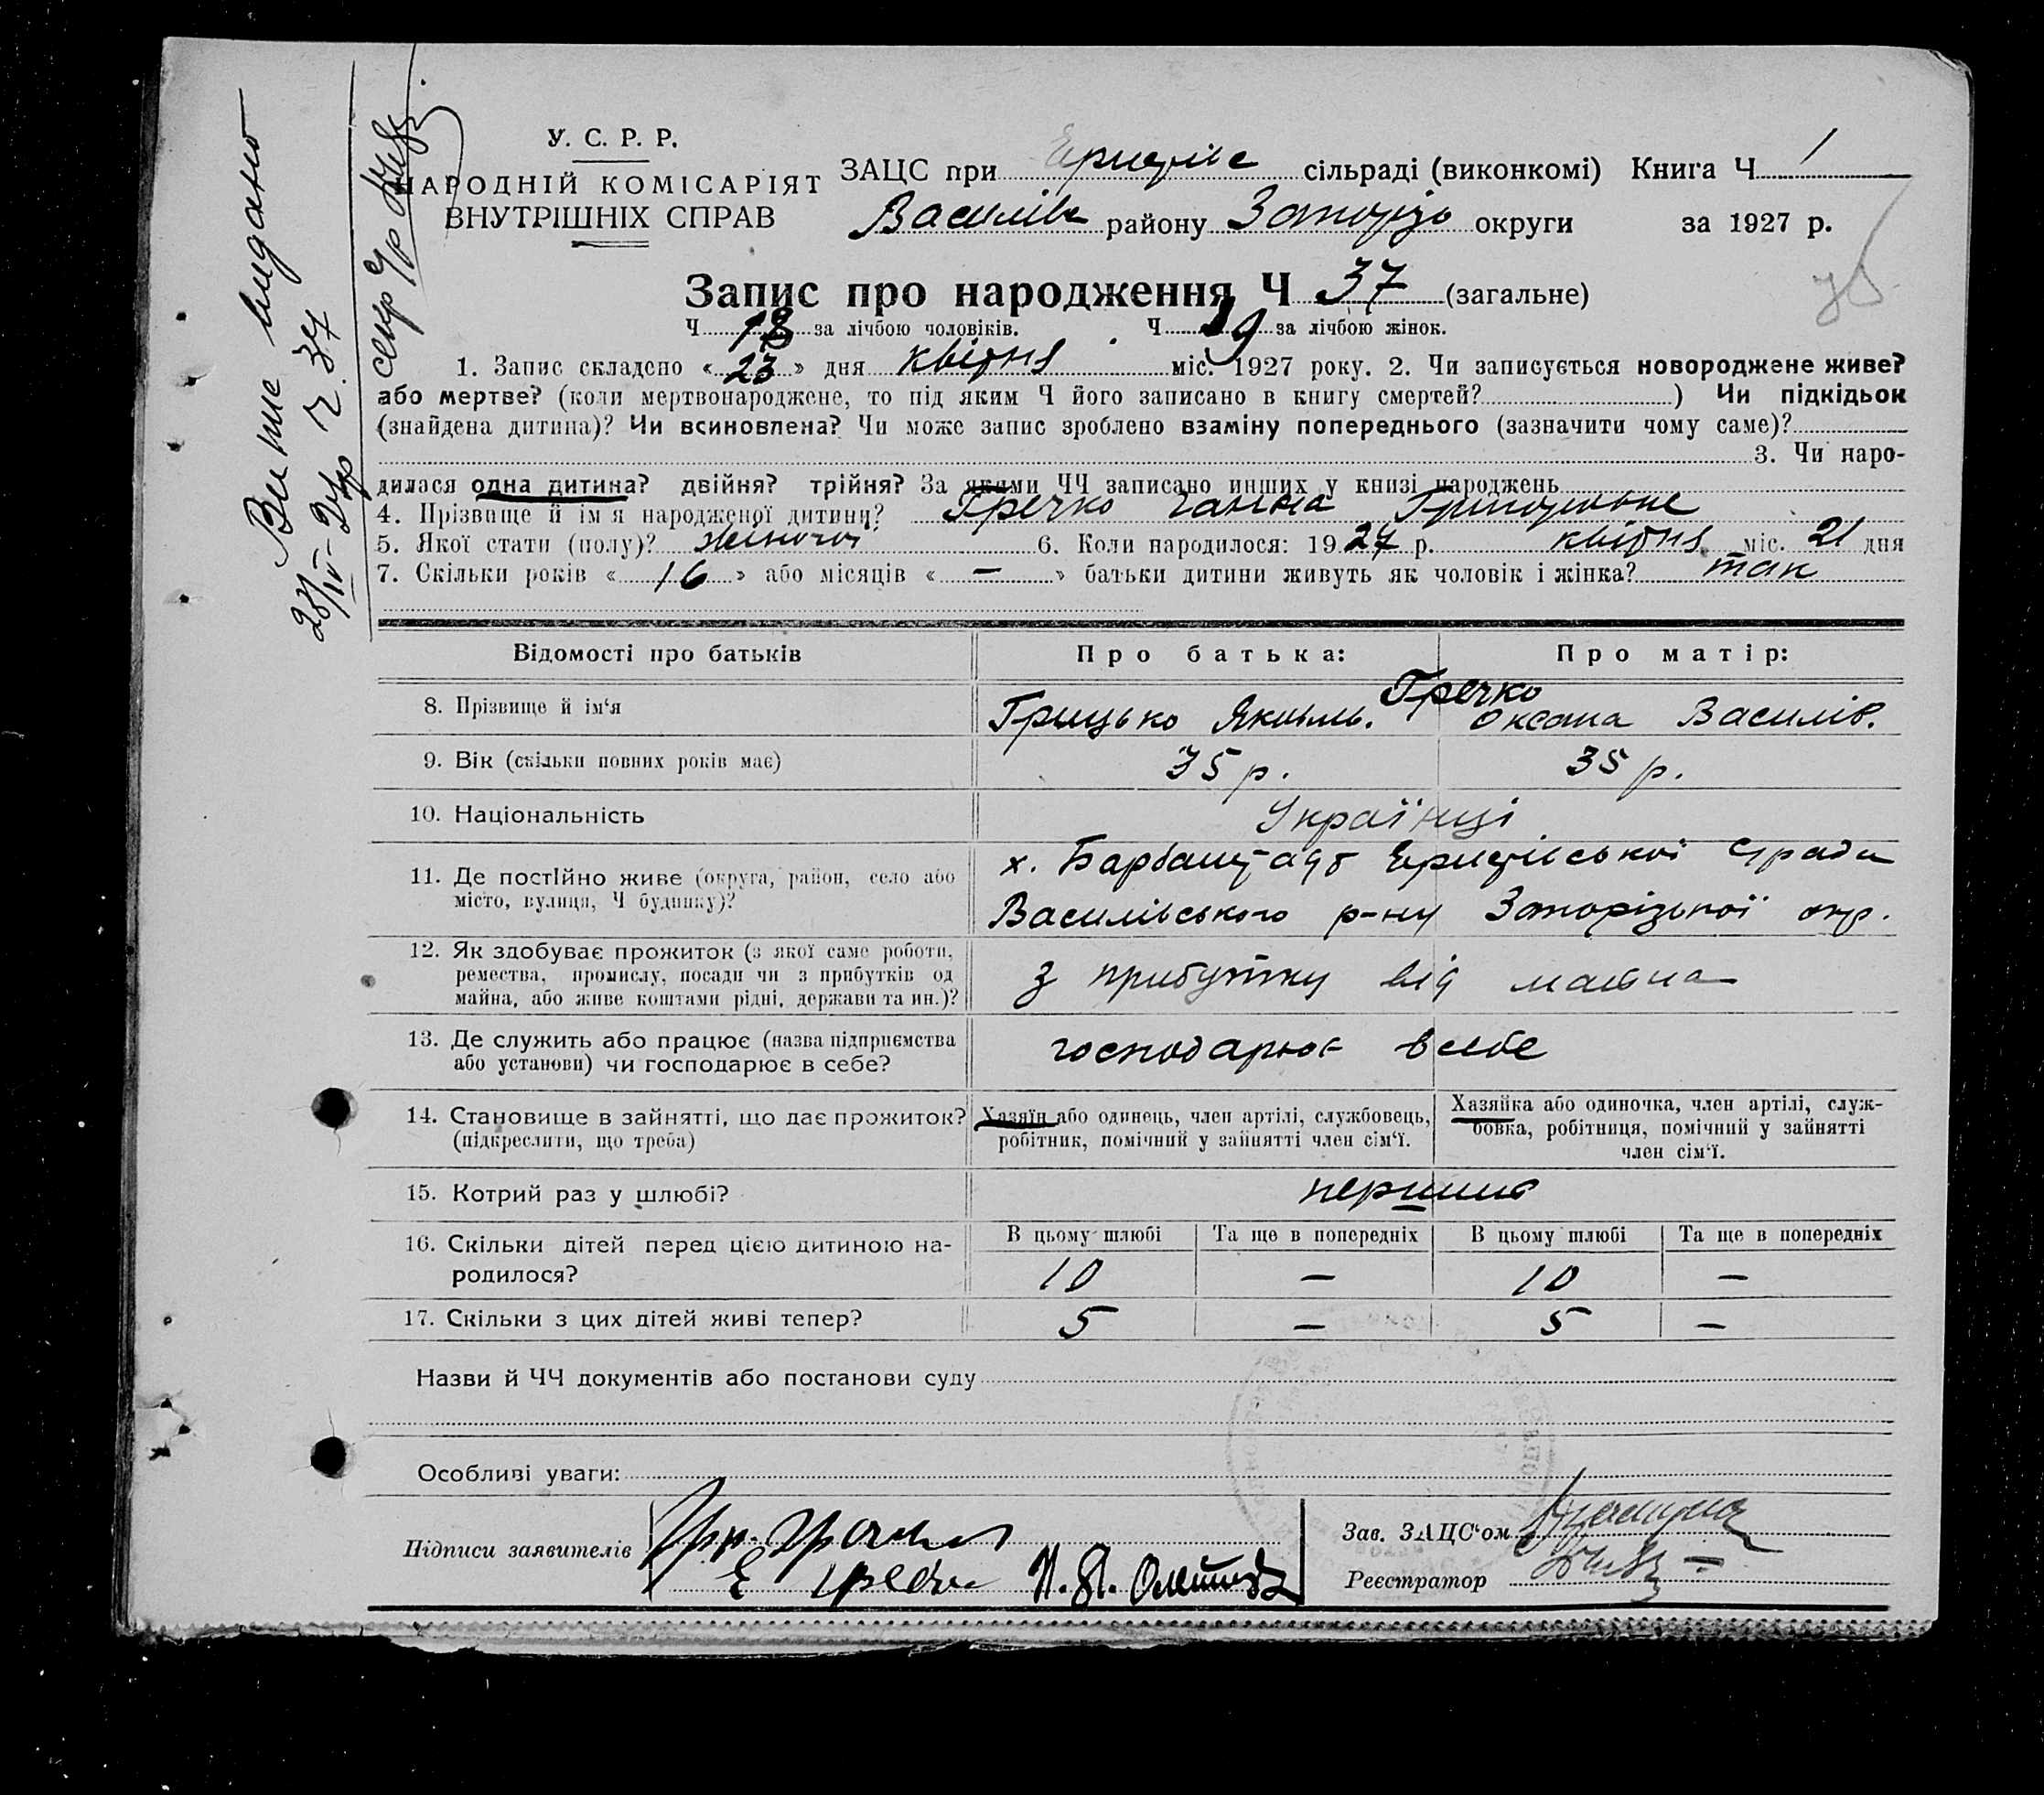 У. С. Р. Р.
НАРОДНІЙ КОМІСАРІЯТ
ВНУТРІШНІХ СПРАВ
ЗАЦС при сільраді (виконкомі) Книга Ч 1
Василів району Запоріз округи за 1927 р.
Запис про народження Ч 37 (загальне)
Ч 18 за лічбою чоловіків. Ч 19 за лічбою жінок.
1. Запис складено « 23 » дня квітня міс. 1927 року. 2. Чи записується новороджене живе?
або мертве? (коли мертвонароджене, то під яким Ч його записано в книгу смертей? ) Чи підкідьок
(знайдена дитина)? Чи всиновлена? Чи може запис зроблено взаміну попереднього (зазначити чому саме)?
3. Чи наро-
дилася одна дитина? двійня? трійня? За якими ЧЧ записано инших у книзі народжень
4. Прізвище й ім'я народженої дитини? Гречко Ганна Григорівна
5. Якої стати (полу)? жіночої 6. Коли народилося: 1927 р. квітня міс. 21 дня
7. Скільки років « 16 » або місяців « — » батьки дитини живуть як чоловік і жінка? так
Відомості про батьків
Про батька:
Про матір:
Гречко
8. Прізвище й ім'я Грицько Якимов. Оксана Василів.
9. Вік (скільки повних років має) 35 р. 35 р.
10. Національність Українці
11. Де постійно живе (округа, район, село або
місто, вулиця, Ч будинку)?
х. с/ради
Василівського р-ну Запорізької окр.
12. Як здобуває прожиток (з якої саме роботи,
ремества, промислу, посади чи з прибутків од
майна, або живе коштами рідні, держави та ин.)?
з прибутку від майна
13. Де служить або працює (назва підприємства
або установи) чи господарює в себе?
господарює в себе
14. Становище в зайнятті, що дає прожиток?
(підкреслити, що треба)
Хазяїн або одинець, член артілі, службовець,
робітник, помічний у зайнятті член сім'ї.
Хазяйка або одиночка, член артілі, служ-
бовка, робітниця, помічний у зайнятті
член сім'ї.
15. Котрий раз у шлюбі? перший
В цьому шлюбі Та ще в попередніх В цьому шлюбі Та ще в попередніх
16. Скільки дітей перед цією дитиною на-
родилося?
10 — 10 —
17. Скільки з цих дітей живі тепер? 5 — 5 —
Назви й ЧЧ документів або постанови суду
Особливі уваги:
Підписи заявителів
Зав. ЗАЦС'ом
Реєстратор
Витяг видано